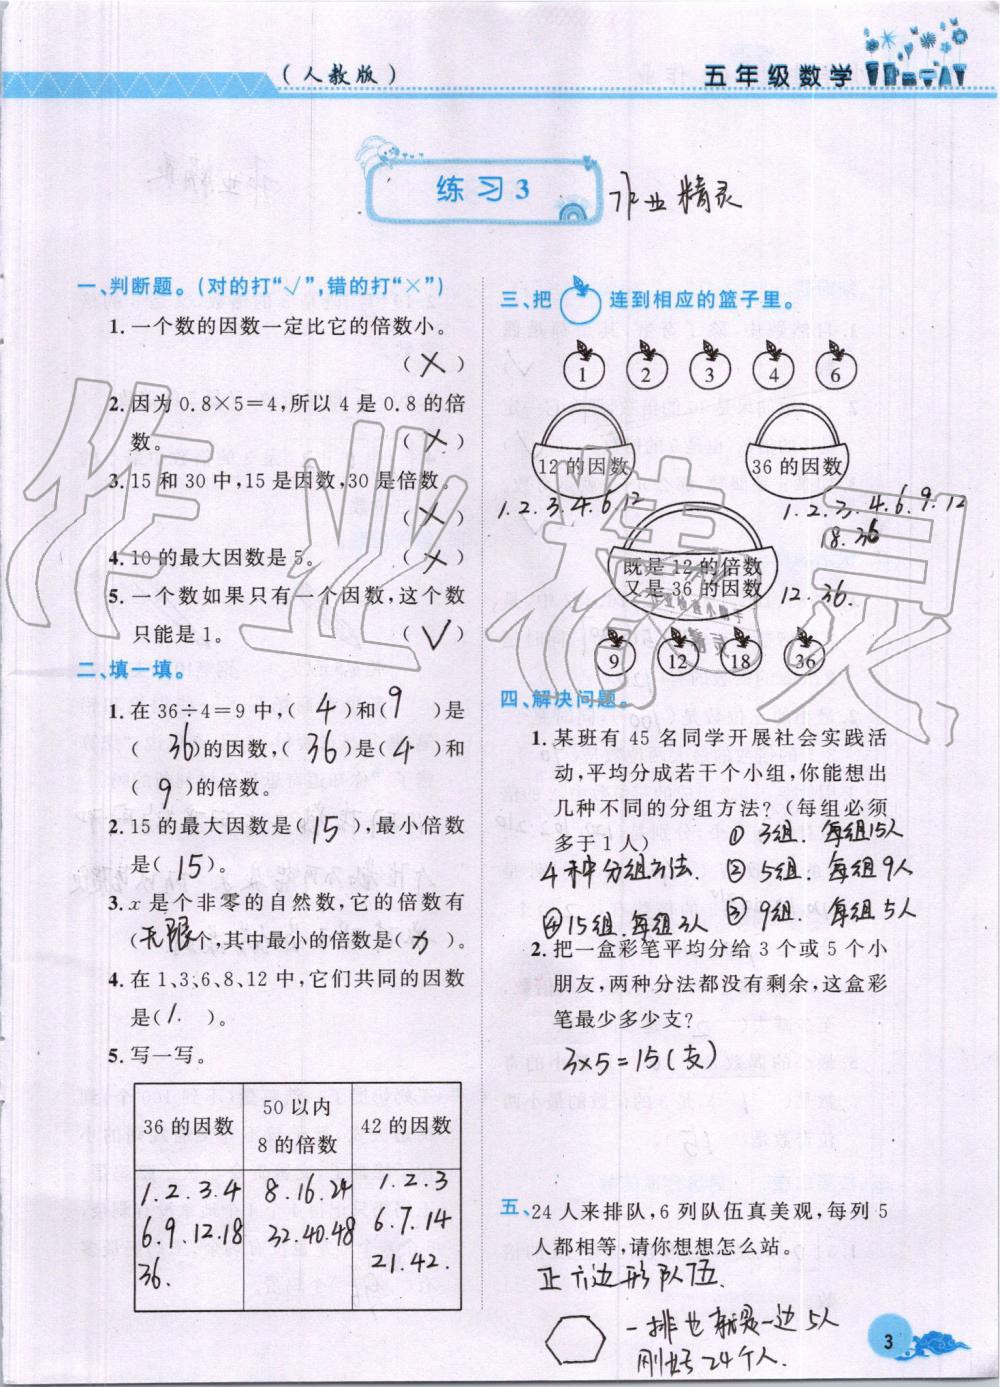 (人教版)
五年级数学
练习3
作业精灵
一、判断题。(对的打“√”,错的打“×”)
1. 一个数的因数一定比它的倍数小。
(×)
2. 因为0.8×5=4,所以4是0.8的倍
数。 (×)
3. 15和30中,15是因数,30是倍数。
(×)
4. 10的最大因数是5。 (×)
5. 一个数如果只有一个因数,这个数
只能是1。 (√)
二、填一填。
1. 在36÷4=9中,( 4 )和( 9 )是
( 36 )的因数,( 36 )是( 4 )和
( 9 )的倍数。
2. 15的最大因数是( 15 ),最小倍数
是( 15 )。
3. x是个非零的自然数,它的倍数有
(无限)个,其中最小的倍数是( x )。
4. 在1、3、6、8、12中,它们共同的因数
是( 1. )。
5. 写一写。
36的因数
50以内
8的倍数
42的因数
1.2.3.4
6.9.12.18
36.
8.16.24
32.40.48
1.2.3
6.7.14
21.42.
三、把 连到相应的篮子里。
1 2 3 4 6
12的因数 36的因数
1.2.3.4.6.12
1.2.3.4.6.9.12
18.36
既是12的倍数
又是36的因数
12.36.
9 12 18 36
四、解决问题。
1. 某班有45名同学开展社会实践活
动,平均分成若干个小组,你能想出
几种不同的分组方法?(每组必须
多于1人)
① 3组. 每组15人
4种分组方法. ② 5组. 每组9人
④15组.每组3人 ③ 9组. 每组5人
2. 把一盒彩笔平均分给3个或5个小
朋友,两种分法都没有剩余,这盒彩
笔最少多少支?
3×5=15(支)
五、24人来排队,6列队伍真美观,每列5
人都相等,请你想想怎么站。
正六边形队伍.
一排也就是一边5人
刚好24个人.
3
作业精灵